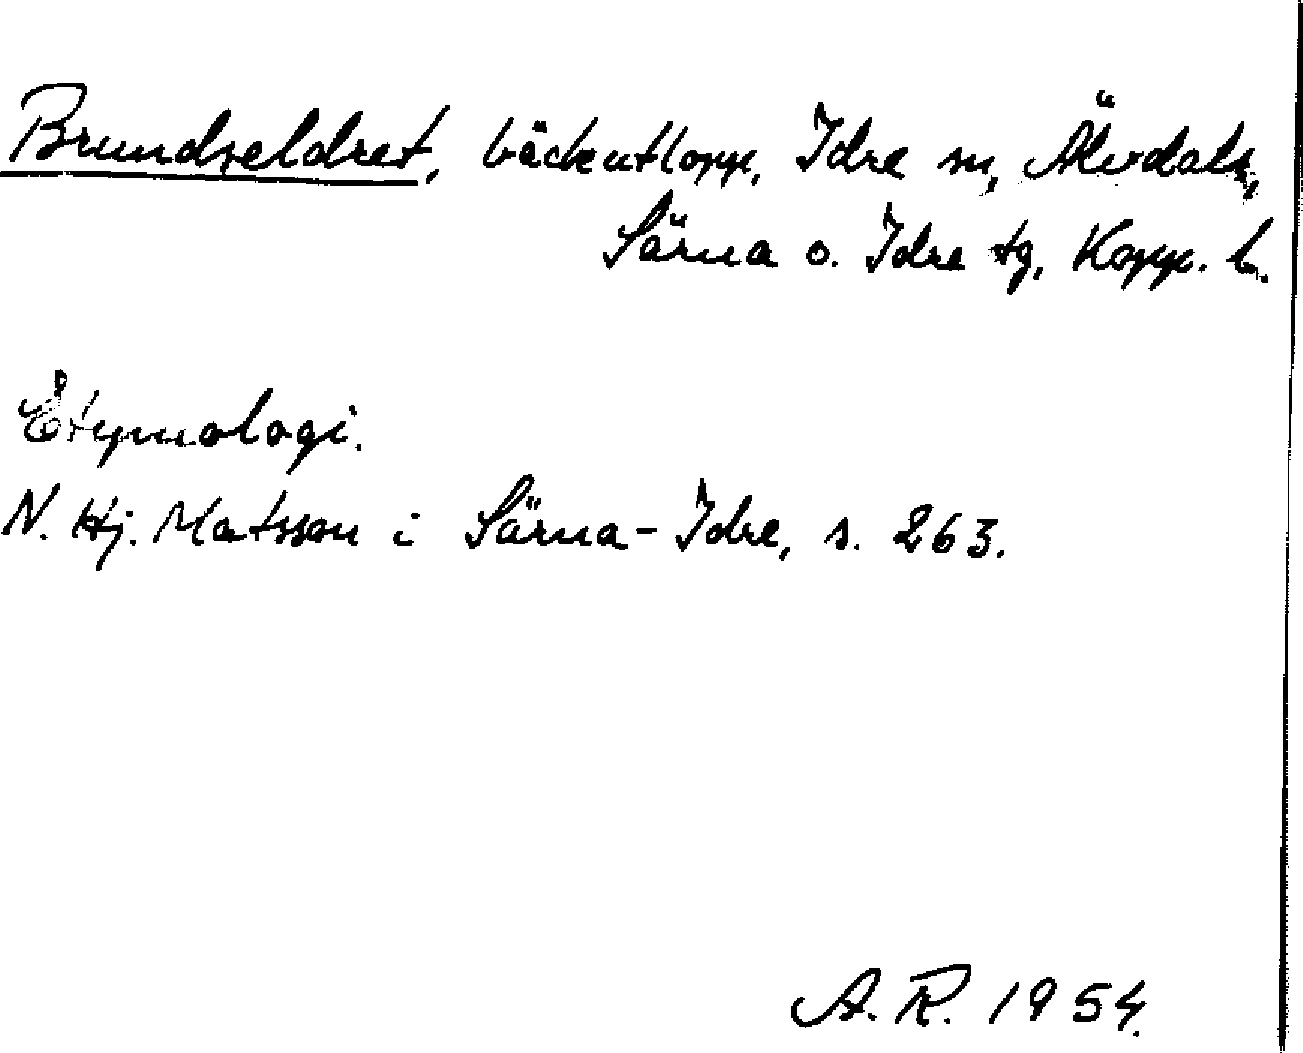 Brundseldret, bäckutlopp, Idre sn, Älvdals,
Särna o. Idre tg, Kopp. l.
Etymologi.
N. Hj. Matsson i Särna-Idre, s. 263.
A. R. 1954.